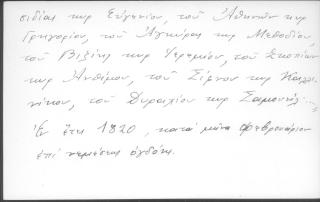 σιδίας κυρ Εὐγενίου, τοῦ Ἀθηνῶν κυρ
Γρηγορίου, τοῦ Ἀγκύρας κυρ Μεθοδίου,
τοῦ Βιζύης κυρ Ἱερεμίου, τοῦ Σκοπίων
κυρ Ἀνθίμου, τοῦ Σίφνου κυρ Καλλι-
νίκου, τοῦ Δυρραχίου κυρ Σαμουήλ....
Ἐν ἔτει 1820, κατά μῆνα Φεβρουάριον
ἐπί νεμέσεως ὀγδόης.